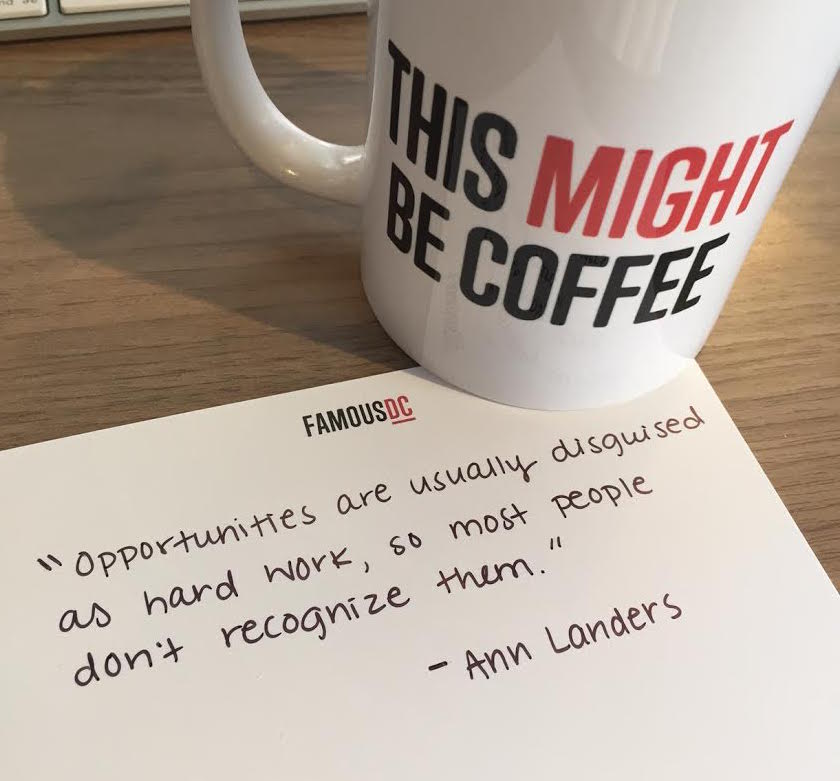 THIS MIGHT
BE COFFEE
FAMOUSDC
"Opportunities are usually disguised
as hard work, so most people
don't recognize them."
- Ann Landers